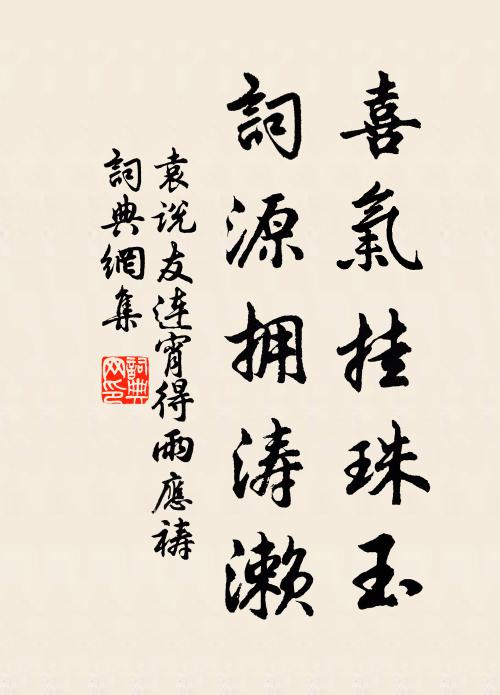 喜氣挂珠玉
詞源拥涛濑
袁说友连宵得雨應祷
詞典網集
詞典网印